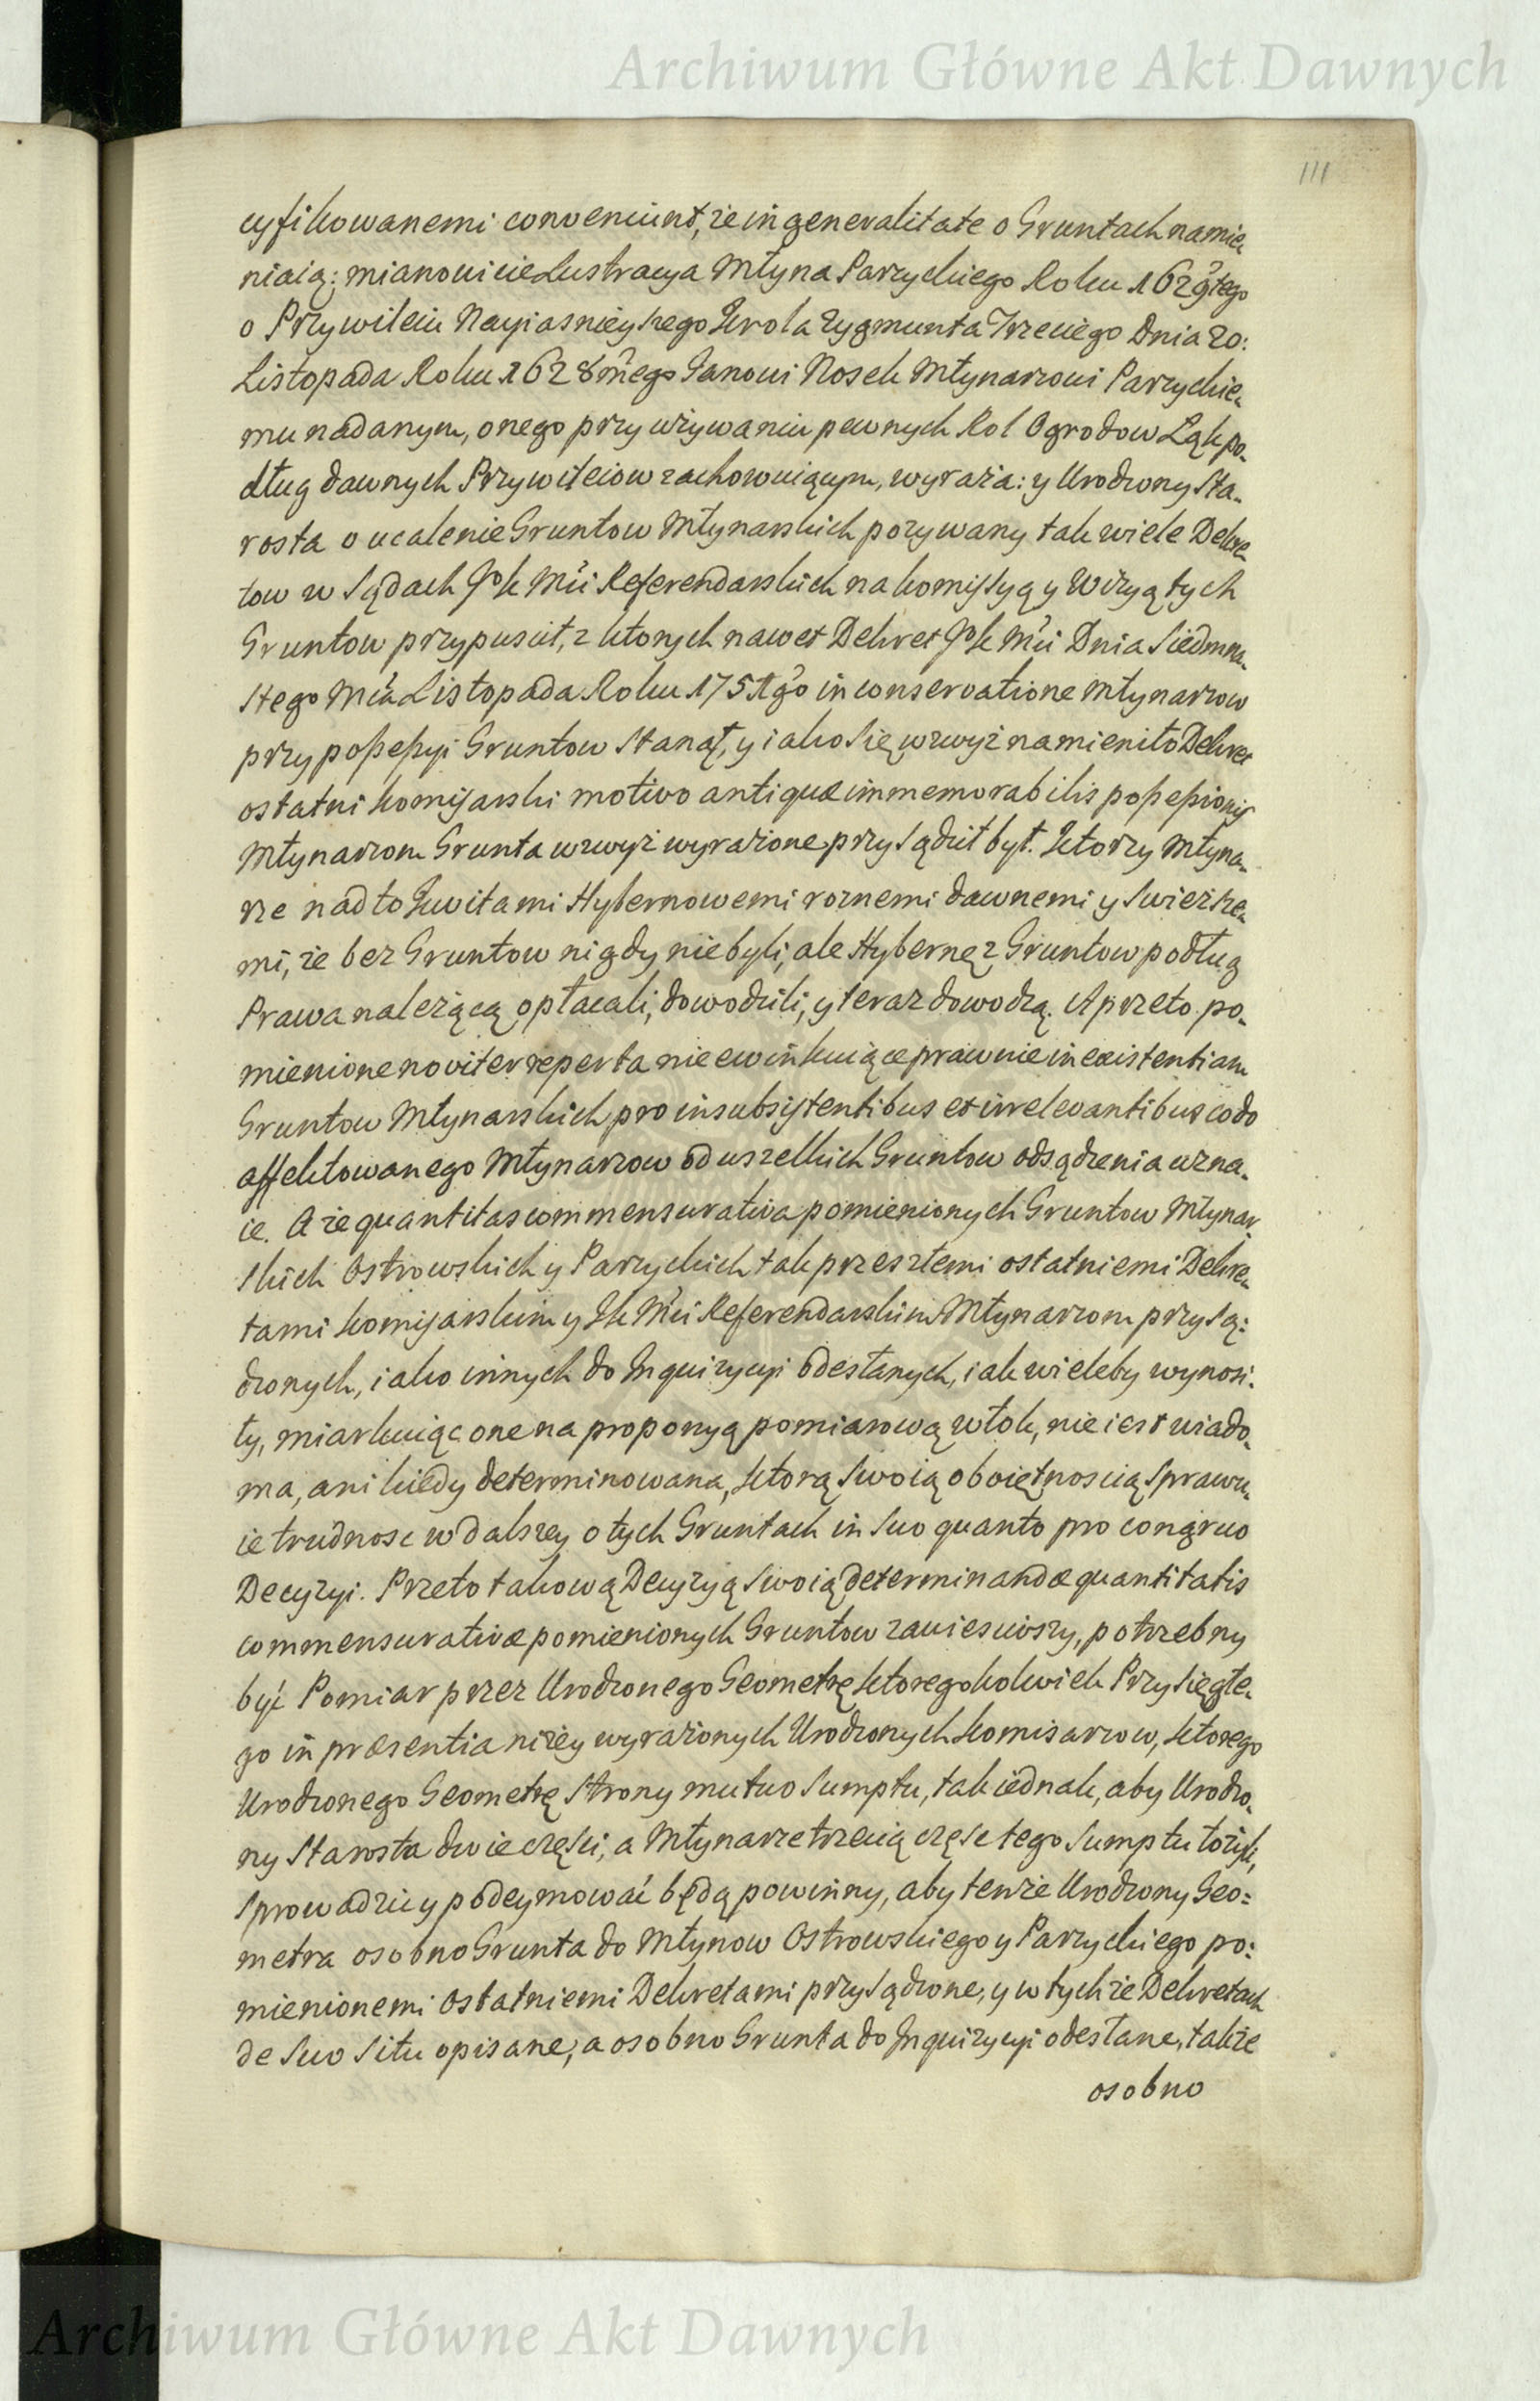 Archiwum Główne Akt Dawnych
111
cyfikowanemi conveniunt, że in generalitate o Gruntach namie„
niaią; mianowicie Lustracya Młyna Parzyckiego Roku 1629tego
o Przywileiu Nayiasnieyszego Krola Zygmunta Trzeciego Dnia 20:
Listopada Roku 1628mego Janowi Nosek Młynarzowi Parzyckie„
mu nadanym, onego przy używaniu pewnych Rol Ogrodow Łąk po„
dług dawnych Przywileiow zachowuiącym, wyraża: y Urodzony Sta„
rosta o ucalenie Gruntow Młynarskich pozywany tak wiele Dekre
tow w Sądach JoK Mci Referendarskich na komissyą y Wizyą tych
Gruntow przypuscił, z ktorych nawet Dekret JoK Mci Dnia Siedmna„
stego Mca Listopada Roku 1751go in conservatione Młynarzow
przy possessyi Gruntow stanął, y iako się wzwyż namieniło Dekret
ostatni komisarski motivo antiquæ immemorabilis possessionis
Młynarzom Grunta wzwyż wyrażone przysądził był. Ktorzy Młyna„
rze nad to Kwitami Hybernowemi roznemi dawnemi y swieższe„
mi, że bez Gruntow nigdy nie byli, ale Hybernę z Gruntow podług
Prawa należącą opłacali, dowodzili, y teraz dowodzą. A przeto po„
mienione noviter reperta nie ewinkuiące prawnie inexistentiam
Gruntow Młynarskich pro insubsistentibus et irrelevantibus co do
affektowanego Młynarzow od wszelkich Gruntow odsądzenia uzna„
ie. A że quantitas commensurativa pomienionych Gruntow Młynar„
skich Ostrowskich y Parzyckich tak przeszłemi ostatniemi Dekre„
tami komisarskim y JK Mci Referendarskim Młynarzom przysą:
dzonych, iako innych do Inquizycyi odesłanych, iak wieleby wynosi„
ły, miarkuiąc one na proporcyą pomiarową włok, nie iest wiado„
ma, ani kiedy determinowana, ktorą swoią oboiętnoscią sprawu„
ie trudnosc w dalszey o tych Gruntach in suo quanto pro congruo
Decyzyi. Przeto takową Decyzyą swoią determinandæ quantitatis
commensurativæ pomienionych Gruntow zawiesiwszy, potrzebny
być Pomiar przez Urodzonego Geometrę ktoregokolwiek Przysięgłe„
go in præsentia niżey wyrażonych Urodzonych komisarzow, ktorego
Urodzonego Geometrę Strony mutuo sumptu, tak iednak, aby Urodzo„
ny Starosta dwie części, a Młynarze trzecią częsc tego sumptu łożyli,
sprowadzic y podeymować będą powinny, aby tenże Urodzony Geo:
metra osobno Grunta do Młynow Ostrowskiego y Parzyckiego po:
mienionemi ostatniemi Dekretami przysądzone, y w tychże Dekretach
de suo situ opisane, a osobno Grunta do Inquizycyi odesłane, także
osobno
Archiwum Główne Akt Dawnych